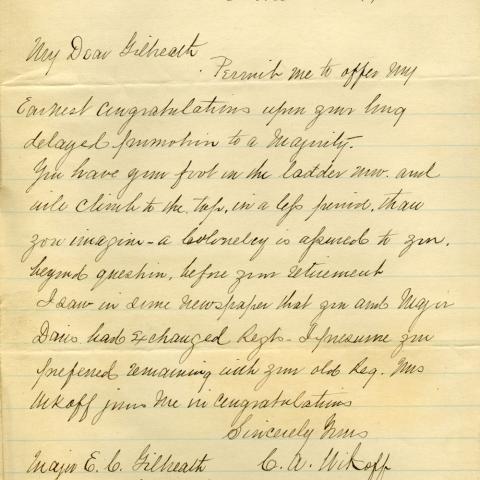 My Dear Gilbreath
Permit me to offer my
Earnest Congratulations upon your long
delayed promotion to a Majority.
You have your foot in the ladder now. and
will climb to the top, in a less period, than
you imagine - a Colonelcy is assured to you,
beyond question, before your retirement
I saw in some newspaper that you and Major
Davis had exchanged Regts - I presume you
preferred remaining with your old Reg. Mrs
Wikoff joins me in Congratulations
Sincerely Yours
Major E. C. Gilbreath C. A. Wikoff